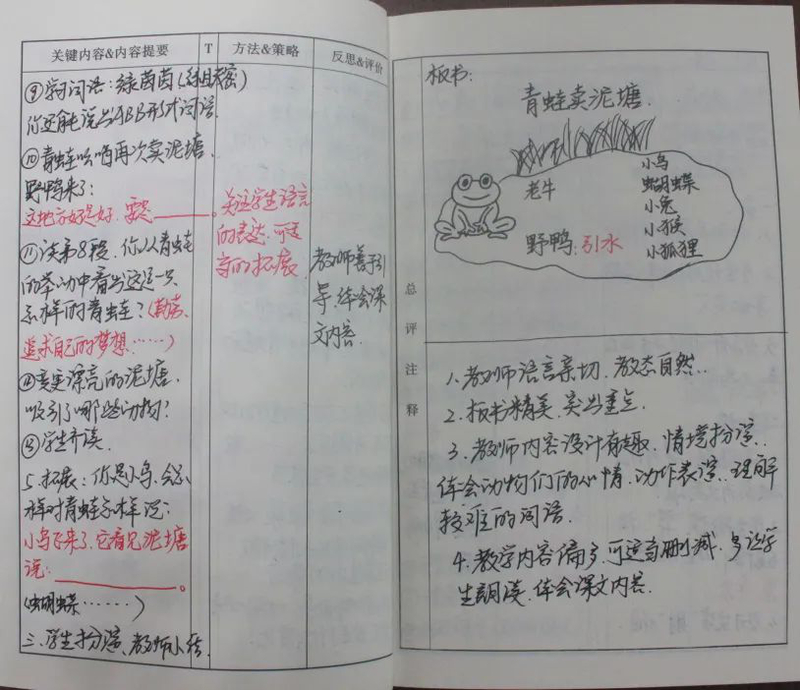 关键内容&内容提要 T 方法&策略 反思&评价
⑨学习词语:绿茵茵(绿且茂密)
你还能说出ABB形式词语
⑩青蛙吆喝再次卖泥塘,
野鸭来了:
这地方好是好,要是______。
⑪读第8段,你从青蛙
的举动中看出这是一只
怎样的青蛙?(勤劳、
追求自己的梦想……)
⑫变漂亮的泥塘,
吸引了哪些动物?
⑬学生齐读。
5.拓展:你是小鸟,会怎
样对青蛙怎样说:
小鸟飞来了,它看见泥塘
说:______。
(蝴蝶……)
三、学生扮演、教师小结
关注学生语言
的表达,可适
当的拓展
教师善于引
导,体会课
文内容。
板书:
青蛙卖泥塘
老牛
野鸭:引水
小鸟
蝴蝶
小兔
小猴
小狐狸
总评注释
1、教师语言亲切,教态自然..
2、板书精美,突出重点.
3、教师内容设计有趣,情境扮演,
体会动物们的心情,动作表演,理解
较难的词语.
4、教学内容偏多,可适当删减,多让学
生朗读,体会课文内容.